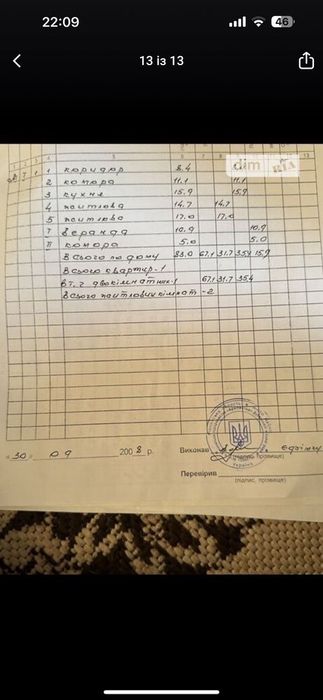 22:09
46
13 із 13
dim RIA
1 коридор 8.4
2 комора 11.1 11.1
3 кухня 15.9 15.9
4 житлова 14.7 14.7
5 житлова 17.0 17.0
I веранда 10.9 10.9
II комора 5.0 5.0
Всього по дому 83.0 67.1 31.7 35.4 15.9
Всього квартир-1
в т.ч двокімнатних-1 67.1 31.7 35.4
Всього житлових кімнат -2
"30" 09 2008 р. Виконав
(підпис, прізвище)
Перевірив
(підпис, прізвище)